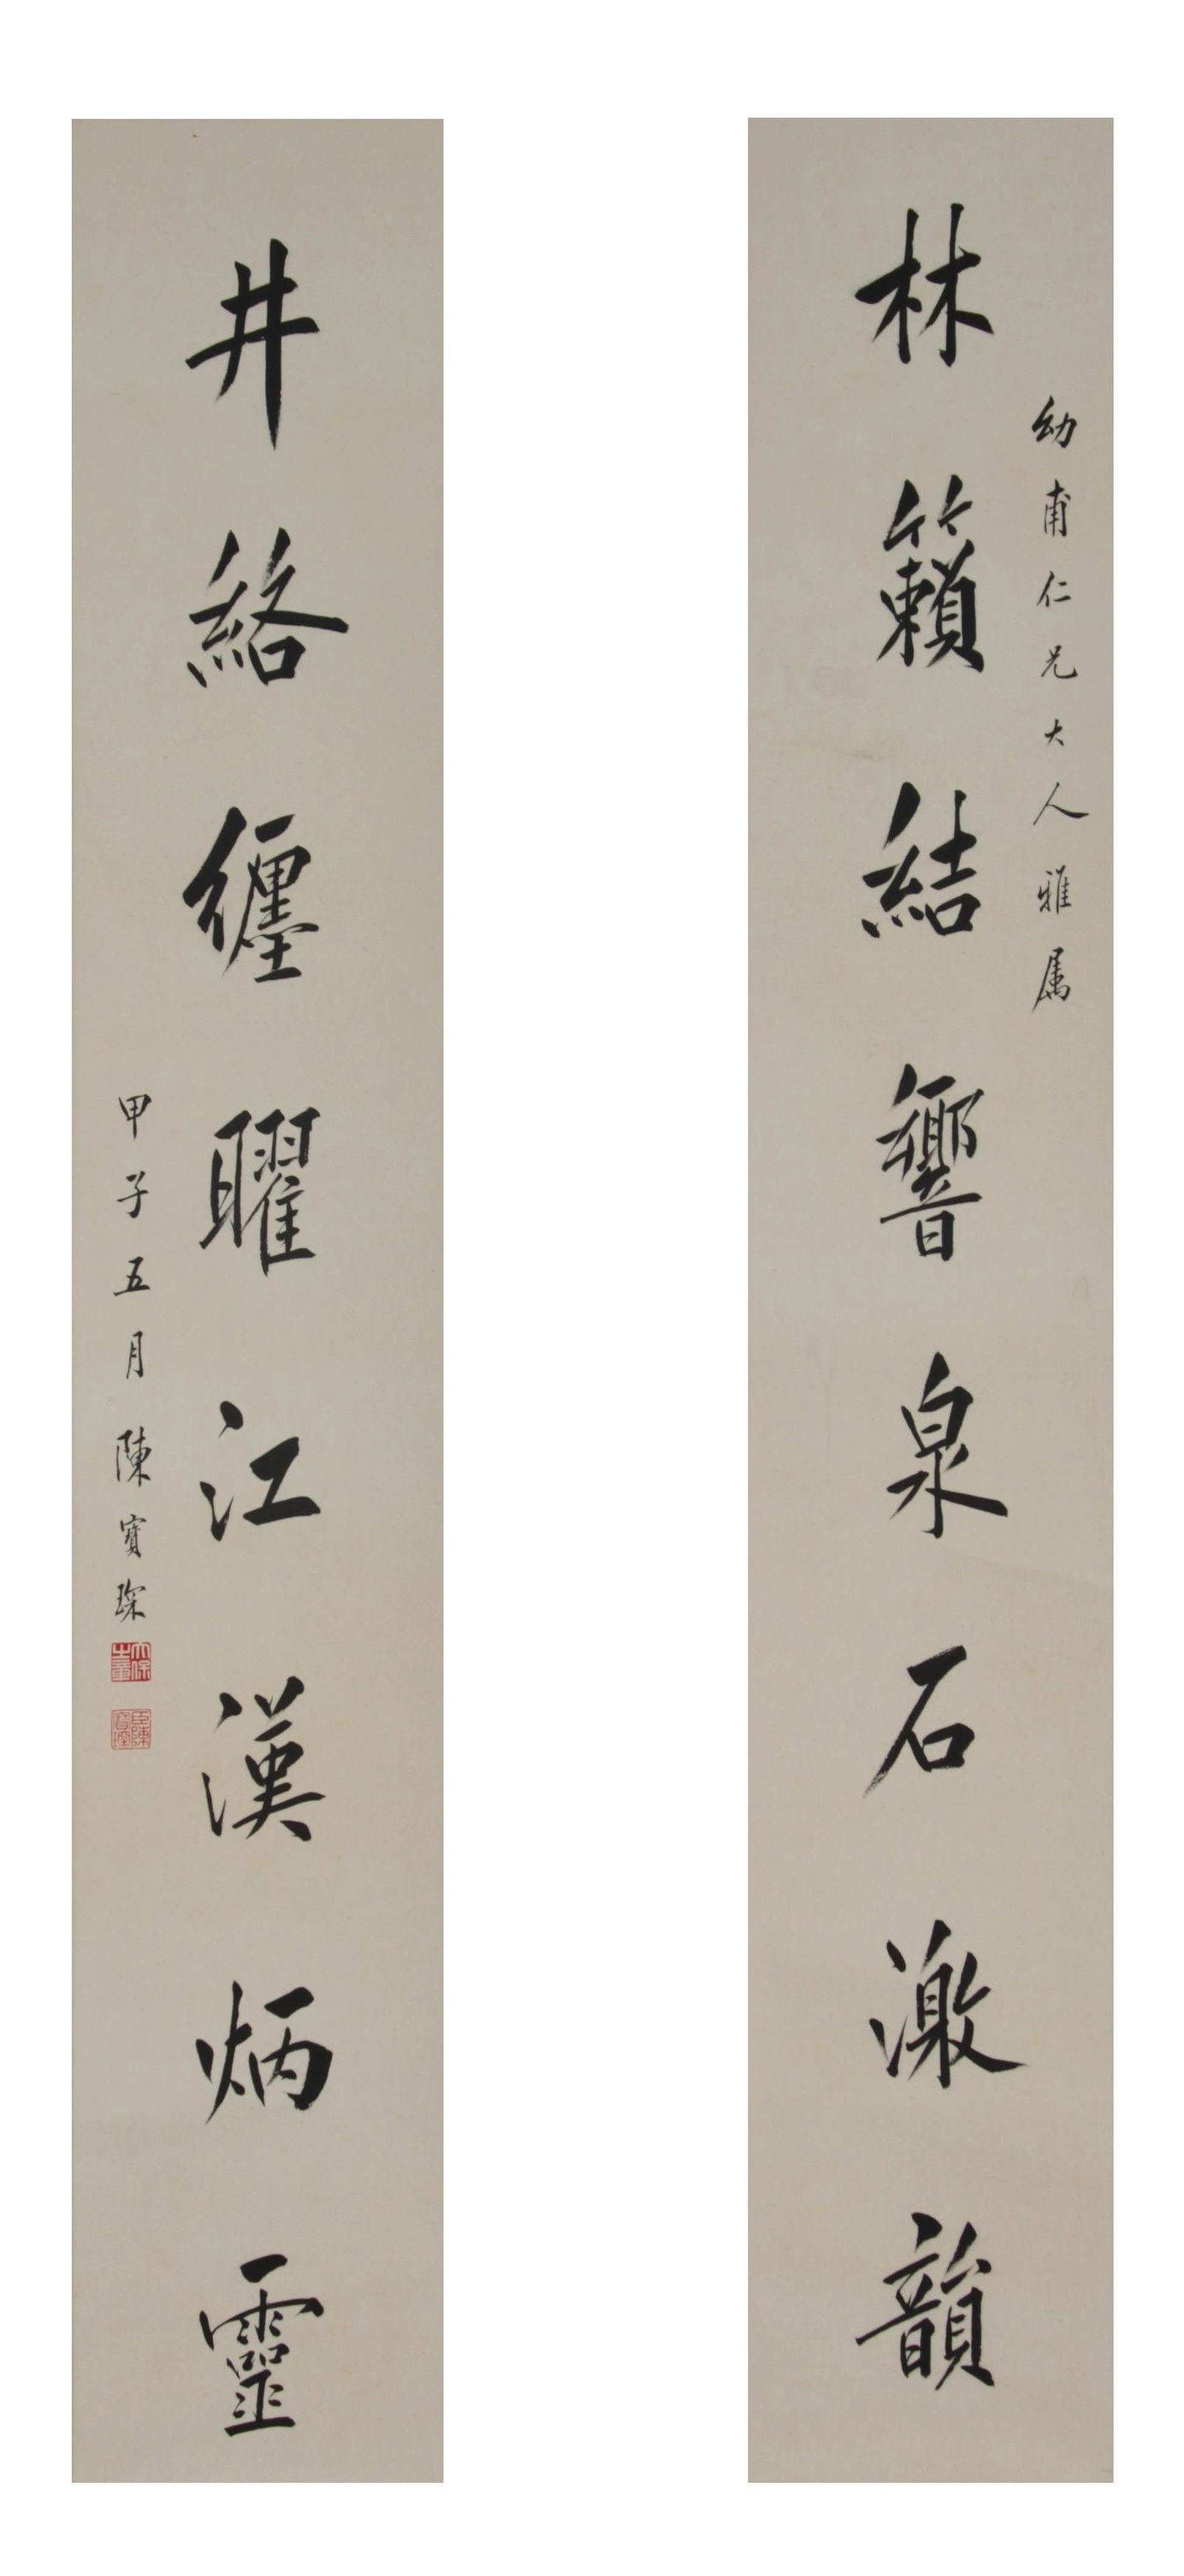 幼甫仁兄大人雅属
林籟結響泉石激韻
井絡纏曜江漢炳靈
甲子五月陳寶琛
臣陳寶琛